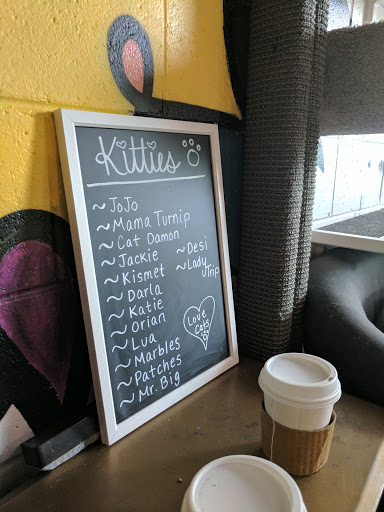 Kitties
~ JoJo
~ Mama Turnip
~ Cat Damon
~ Jackie
~ Kismet
~ Darla
~ Katie
~ Orian
~ Lua
~ Marbles
~ Patches
~ Mr. Big
~ Desi
~ Lady
Trip
Love
Cats